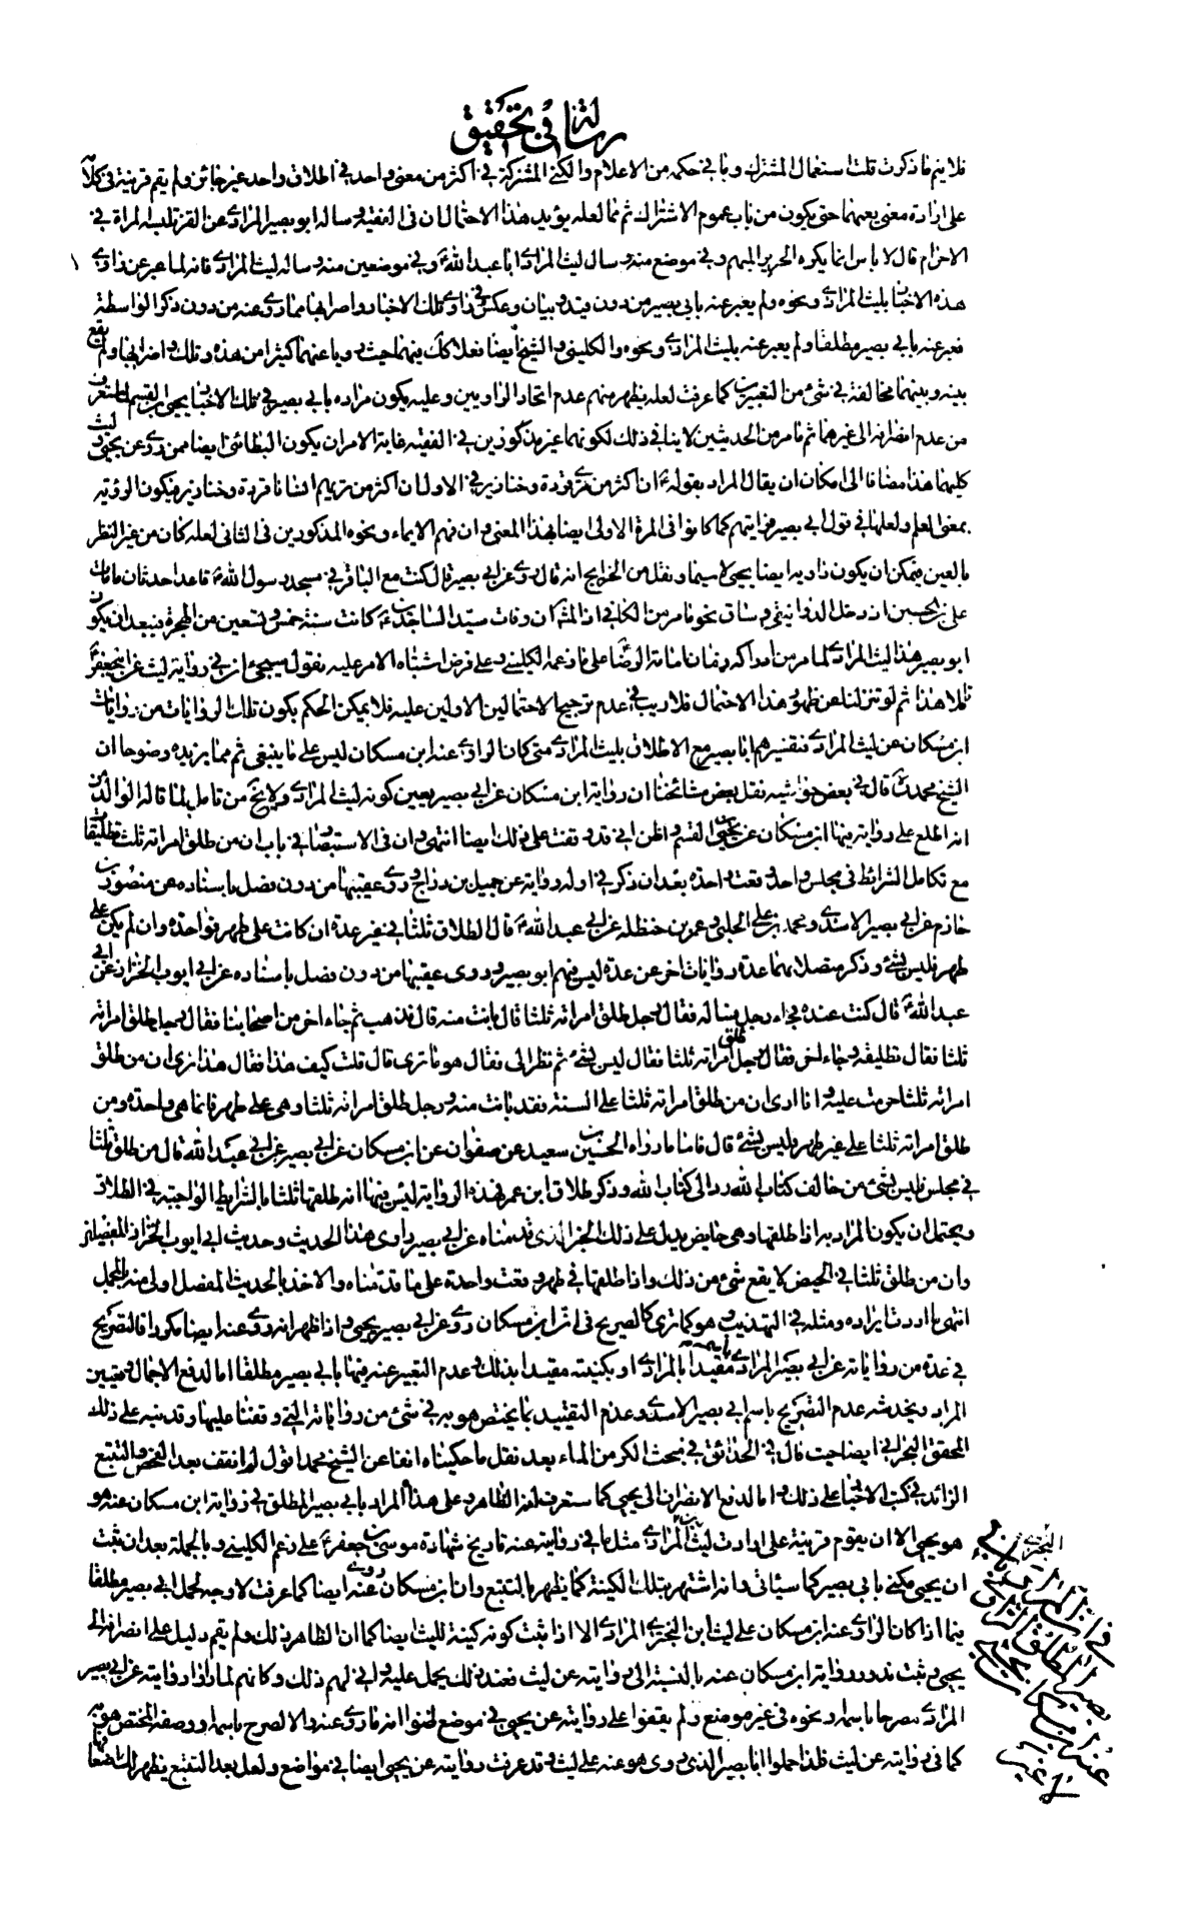 رسالة في تحقيق
فلا يتم ما ذكرت قلت استعمال المشترك وما في حكمه من الاعلام والكنى المشتركة في اكثر من معنى واحد في اطلاق واحد غير جائز ولم يقم قرينة في كلامه
على ارادة معنى يعمهما حتى يكون من باب عموم الاشتراك ثم مما لعله يؤيد هذا الاحتمال ان في الفقيه وساله ابو بصير المرادي عن القز تلبسه المراة في
الاحرام قال لا باس انما يكره الحرير المبهم وفي موضع منه وسال ليث المرادي ابا عبد الله ع وفي موضعين منه وساله ليث المرادي فانه لما عبر عن راوي
هذه الاخبار بليث المرادي ونحوه ولم يعبر عنه بابي بصير من دون قيد وبيان وعكس في راوي تلك الاخبار واضرابها مما روى عنه من دون ذكر الواسطة
فعبر عنه بابي بصير مطلقا ولم يعبر عنه بليث المرادي ونحوه والكليني والشيخ ايضا فعلا كك فيهما حيث رويا عنهما كثيرا من هذه وتلك واضرابها ولم يقع
بينه وبينهما مخالفة في شئ من التعبيرين كما عرفت لعله يظهر منهم عدم اتحاد الراويين وعليه يكون مراده بابي بصير في تلك الاخبار يحيى بن القسم لما ستعرف
من عدم انصرافه الى غيرهما ثم ما مر من الحديثين لا ينافي ذلك لكونهما غير مذكورين في الفقيه غاية الامر ان يكون البطائني ايضا ممن روى عن يحيى وليث
كليهما هذا مضافا الى امكان ان يقال المراد بقوله ع ان اكثر من ترى قردة وخنازير في الاول ان اكثر من تريهم انسانا قردة وخنازير فيكون الرؤية
بمعنى العلم ولعلها في قول ابي بصير فرايتهم كما كانوا في المرة الاولى ايضا بهذا المعنى وان فهم الايماء ونحوه المذكورين في الثاني لعله كان من غير النظر
بالعين فيمكن ان يكون راويه ايضا يحيى لا سيما ونقل من الخرايج انه قال روى عن ابي بصير قال كنت مع الباقر في مسجد رسول الله ص قاعدا حدثان ما مات
على بن الحسين اذ دخل الدوانيقي وساق نحو ما مر من الكافي اذ المش ان وفات سيد الساجدين ع كانت سنة خمس وتسعين من الهجرة فيبعد ان يكون
ابو بصير هذا ليث المرادي لما مر من ادراكه زمان امامة الرضا ع على ما زعمه الكليني وعلى فرض اشتباه الامر عليه نقول سيجئ ان في رواية ليث عن ابيجعفر ع
هذا ثم لو تنزلنا عن ظهور هذا الاحتمال فلا ريب في عدم ترجيح الاحتمالين الاولين عليه فلا يمكن الحكم بكون تلك الروايات من روايات
ابن مسكان عن ليث المرادي فتفسيرهم ابا بصير مع الاطلاق بليث المرادي متى كان الراوي عنه ابن مسكان ليس على ما ينبغي ثم مما يزيده وضوحا ان
الشيخ محمد قال في بعض حواشيه نقل بعض مشائخنا ان رواية ابن مسكان عن ابي بصير يعين كونه ليث المرادي ولا يخ من تامل لما قاله الوالد من
انه اطلع على رواية فيها ابن مسكان عن يحيى بن القسم واظن اني قد وقفت على ذلك ايضا انتهى وان في الاستبصار في باب ان من طلق امراته ثلث تطليقات
مع تكامل الشرائط في مجلس واحد وقعت واحدة بعد ان ذكر في اوله رواية عن جميل بن دراج روى عقيبها من دون فصل باسناده عن منصور بن
حازم عن ابي بصير الاسدي ومحمد بن علي الحلبي وعمر بن حنظلة عن ابي عبد الله ع قال الطلاق ثلثا في غير عدة ان كانت على طهر فواحدة وان لم يكن على
طهر فليس بشئ وذكر متصلا بهما عدة روايات اخر عن عدة ليس فيهم ابو بصير وروى عقيبها من دون فصل باسناده عن ابي ايوب الخزاز عن ابي
عبد الله ع قال كنت عنده فجاء رجل فساله فقال رجل طلق امراته ثلثا قال بانت منه قال فذهب ثم جاء اخر من اصحابنا فقال رجل طلق امراته
ثلثا فقال تطليقة وجاء اخر فقال رجل طلق امراته ثلثا فقال ليس بشئ ثم نظر الى فقال هو ما ترى قال قلت كيف هذا فقال هذا يرى ان من طلق
امراته ثلثا حرمت عليه وانا ارى ان من طلق امراته ثلثا على السنة فقد بانت منه ورجل طلق امراته ثلثا وهي على طهر فانما هي واحدة ومن
طلق امراته ثلثا على غير طهر فليس بشئ قال فاما ما رواه الحسين بن سعيد عن صفوان عن ابن مسكان عن ابي بصير عن ابي عبد الله قال من طلق ثلثا
في مجلس فليس بشئ من خالف كتاب الله رد الى كتاب الله وذكر طلاق ابن عمر فهذه الرواية ليس فيها انه طلقها ثلثا بالشرايط الواجبة في الطلاق
ويحتمل ان يكون المراد به اذا طلقها وهي حايض يدل على ذلك الخبر الذي قدمناه عن ابي بصير راوى هذا الحديث وحديث ابي ايوب الخزاز المفصل
وان من طلق ثلثا في الحيض لا يقع شئ من ذلك واذا طلقها في طهر وقعت واحدة على ما قدمناه والاخذ بالحديث المفصل اولى منه بالمجمل
انتهى ما اردت ايراده ومثله في التهذيب وهو كما ترى كالصريح في ان ابن مسكان روى عن ابي بصير يحيى واذا ظهر انه روى عنه ايضا مكررا فالتصريح
في عدة من رواياته عن ابي بصير المرادي باسمه مقيدا بالمرادي او بكنيته مقيدا بذلك وعدم التعبير عنه فيها بابي بصير مطلقا اما لدفع الاجمال وتعيين
المراد ويخدشه عدم التصريح باسم ابي بصير الاسدي وعدم التقييد بما يختص هو به في شئ من رواياته التي وقفنا عليها وقد نبه على ذلك
المحقق البحراني ايضا حيث قال في الحدائق في مبحث الكر من الماء بعد نقل ما حكيناه انفا عن الشيخ محمد اقول لم اقف بعد الفحص والتتبع
الزائد في كتب الاخبار على ذلك واما لدفع الانصراف الى يحيى كما ستعرف انه الظاهر وعلى هذا المراد بابي بصير المطلق في رواية ابن مسكان عنه هو
هو يحيى الا ان يقوم قرينة على ارادت ليث المرادي مثل ما في روايته عنه تاريخ شهادة موسى بن جعفر ع على زعم الكليني وبالجملة بعد ان ثبت
ان يحيى مكنى بابي بصير كما سيأتي وانه اشتهر بتلك الكنية كما يظهر بالتتبع وان ابن مسكان روى عنه ايضا كما عرفت لا وجه لحمل ابي بصير مطلقا
فيما اذا كان الراوي عنه ابن مسكان على ليث ابن البختري المرادي الا اذا ثبت كونه كنية لليث ايضا كما ان الظاهر ذلك ولم يقم دليل على انصرافه الى
يحيى وثبت ندور رواية ابن مسكان عنه بالنسبة الى روايته عن ليث فعند ذلك يحمل عليه واني لهم ذلك وكانهم لما راوا روايته عن ابي بصير
المرادي مصرحا باسمه ونحوه في غير موضع ولم يقفوا على روايته عن يحيى في موضع ظنوا انه ما روى عنه والا لصرح باسمه او وصفه المختص هو به
كما في روايته عن ليث فلذا حملوا ابا بصير الذي روى هو عنه على ليث وقد عرفت روايته عن يحيى ايضا في مواضع ولعل بعد التتبع يظهر لك اضعافها